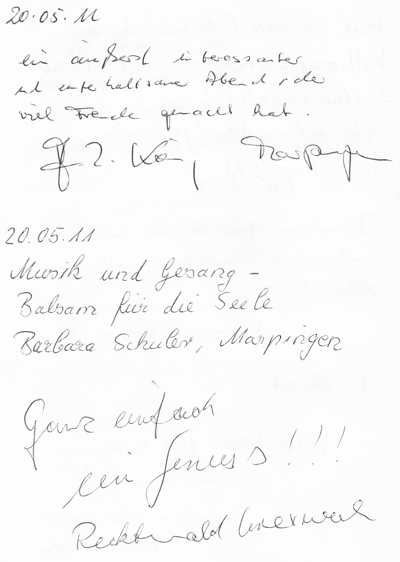 20.05.11
ein äußerst interessanter
und unterhaltsamer Abend, der
viel Freude gemacht hat.
Marpingen
20.05.11
Musik und Gesang –
Balsam für die Seele
Barbara Schuler, Marpingen
Ganz einfach
ein Genuss!!!
Recktenwald